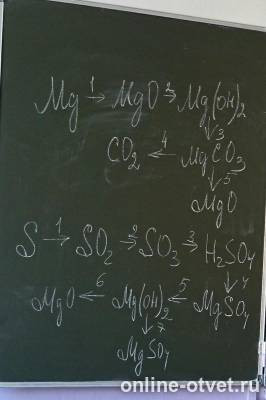 Mg 1→ MgO 2→ Mg(OH)2
↓3
CO2 ←4 MgCO3
↓5
MgO
S 1→ SO2 2→ SO3 3→ H2SO4
↓4
MgO ←6 Mg(OH)2 ←5 MgSO4
↓7
MgSO4
online-otvet.ru